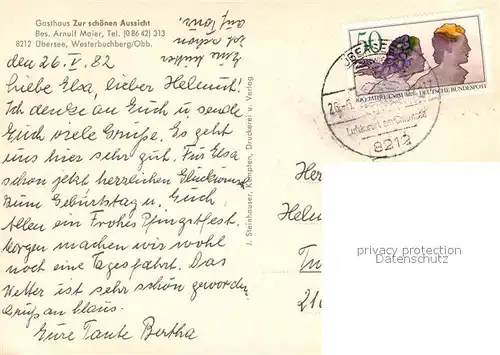 Gasthaus Zur schönen Aussicht
Bes. Arnulf Maier, Tel. (0 86 42) 313
8212 Übersee, Westerbuchberg/Obb.
den 26. V. 82
Liebe Elsa, lieber Helmut!
Ich denke an Euch u. sende
Euch viele Grüße. Es geht
uns hier sehr gut. Für Elsa
schon jetzt herzlichen Glückwunsch
zum Geburtstag u. Euch
Allen ein Frohes Pfingstfest.
Morgen machen wir wohl
noch eine Tagesfahrt. Das
Wetter ist sehr schön geworden
Gruß an Klaus.
Eure Tante Bertha
auf Tour.
J. Steinhauser, Kempten, Druckerei u. Verlag
50
DEUTSCHE BUNDESPOST
ÜBERSEE
26.-5.
Luftkurort am Chiemsee
8212
Her
Helm
privacy protection
Datenschutz